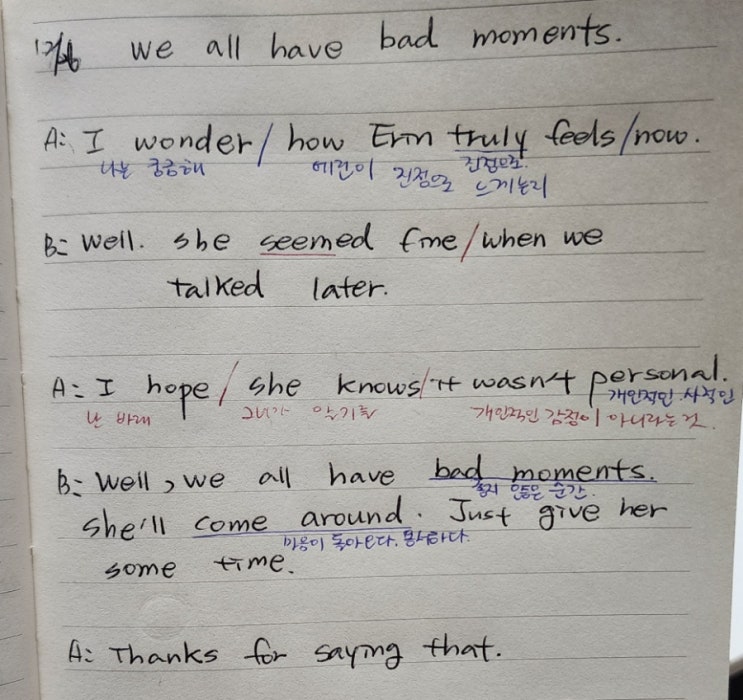 we all have bad moments.
A: I wonder / how Erin truly feels / now.
나는 궁금해 에린이 진정으로 느끼는지 진정으로
B: Well. she seemed fine / when we
talked later.
A: I hope / she knows / it wasn't personal.
개인적인 사적인
난 바래 그녀가 알기를 개인적인 감정이 아니라는 것.
B: Well, we all have bad moments.
좋지 않은 순간.
she'll come around. Just give her
마음이 돌아오다. 용서하다.
some time.
A: Thanks for saying that.